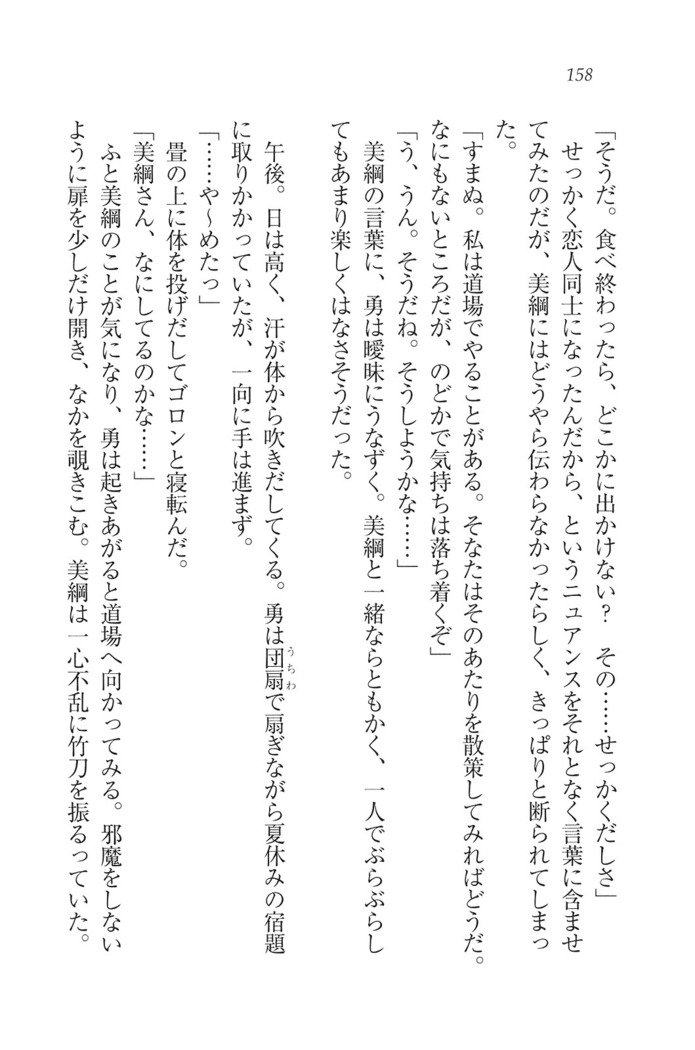 158
「そうだ。食べ終わったら、どこかに出かけない？　その……せっかくだしさ」
　せっかく恋人同士になったんだから、というニュアンスをそれとなく言葉に含ませ
てみたのだが、美綱にはどうやら伝わらなかったらしく、きっぱりと断られてしまっ
た。
「すまぬ。私は道場でやることがある。そなたはそのあたりを散策してみればどうだ。
なにもないところだが、のどかで気持ちは落ち着くぞ」
「う、うん。そうだね。そうしようかな……」
　美綱の言葉に、勇は曖昧にうなずく。美綱と一緒ならともかく、一人でぶらぶらし
てもあまり楽しくはなさそうだった。
　午後。日は高く、汗が体から吹きだしてくる。勇は団扇うちわで扇ぎながら夏休みの宿題
に取りかかっていたが、一向に手は進まず。
「……や～めたっ」
　畳の上に体を投げだしてゴロンと寝転んだ。
「美綱さん、なにしてるのかな……」
　ふと美綱のことが気になり、勇は起きあがると道場へ向かってみる。邪魔をしない
ように扉を少しだけ開き、なかを覗きこむ。美綱は一心不乱に竹刀を振るっていた。